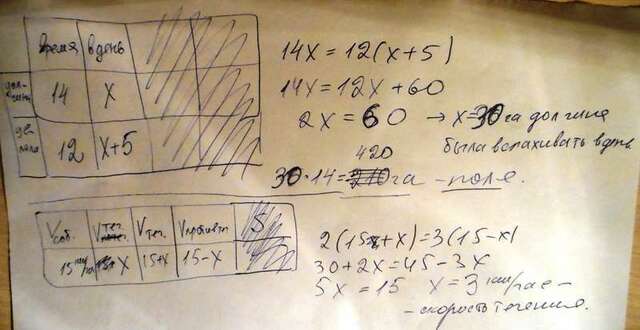 время в день
должна 14 x
делала 12 x+5
14x=12(x+5)
14x=12x+60
2x=60 → x=30 га должна
была вспахивать в день
420
30·14=210 га - поля.
Vсоб. Vтеч. Vтеч. Vпротивт. S
15 км/ч x 15+x 15-x
2(15+x)=3(15-x)
30+2x=45-3x
5x=15 x=3 км/час-
-скорость течения.